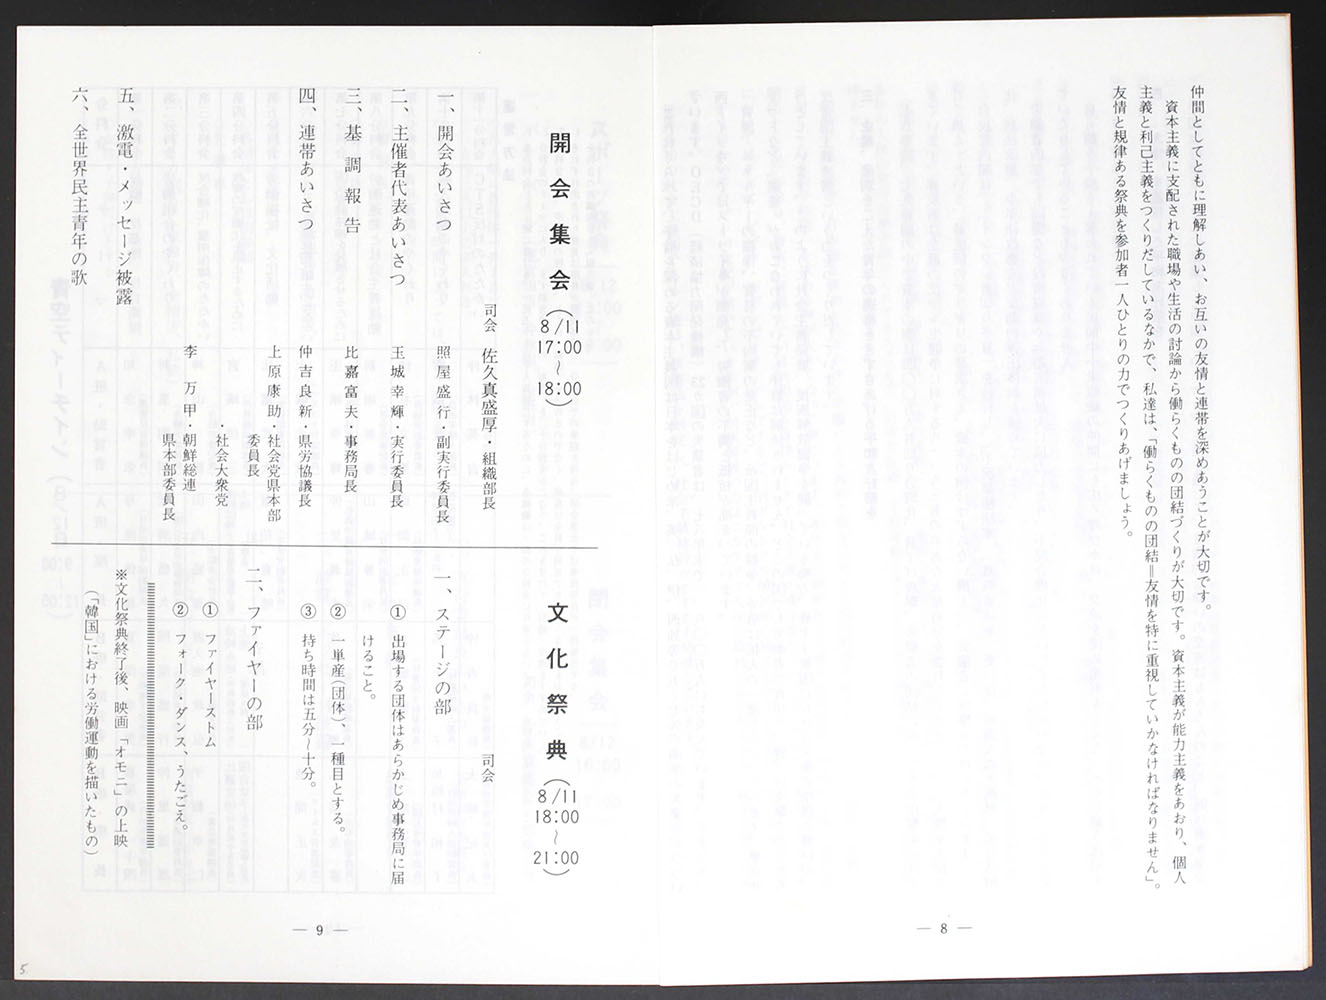 仲間としてともに理解しあい、お互いの友情と連帯を深めあうことが大切です。
資本主義に支配された職場や生活の討論から働らくものの団結づくりが大切です。資本主義が能力主義をあおり、個人
主義と利己主義をつくりだしているなかで、私達は、「働らくものの団結＝友情を特に重視していかなければなりません」。
友情と規律ある祭典を参加者一人ひとりの力でつくりあげましょう。
— 8 —
開会集会（8/11 17:00～18:00）
司会 佐久真盛厚・組織部長
一、開会あいさつ 照屋盛行・副実行委員長
二、主催者代表あいさつ 玉城幸輝・実行委員長
三、基調報告 比嘉富夫・事務局長
四、連帯あいさつ 仲吉良新・県労協議長
上原康助・社会党県本部
委員長
社会大衆党
李万甲・朝鮮総連
県本部委員長
五、激電・メッセージ被露
六、全世界民主青年の歌
文化祭典（8/11 18:00～21:00）
司会
一、ステージの部
① 出場する団体はあらかじめ事務局に届
けること。
② 一単産（団体）、一種目とする。
③ 持ち時間は五分～十分。
二、ファイヤーの部
① ファイヤーストム
② フォーク・ダンス、うたごえ。
※文化祭典終了後、映画「オモニ」の上映
（「韓国」における労働運動を描いたもの）
— 9 —
5